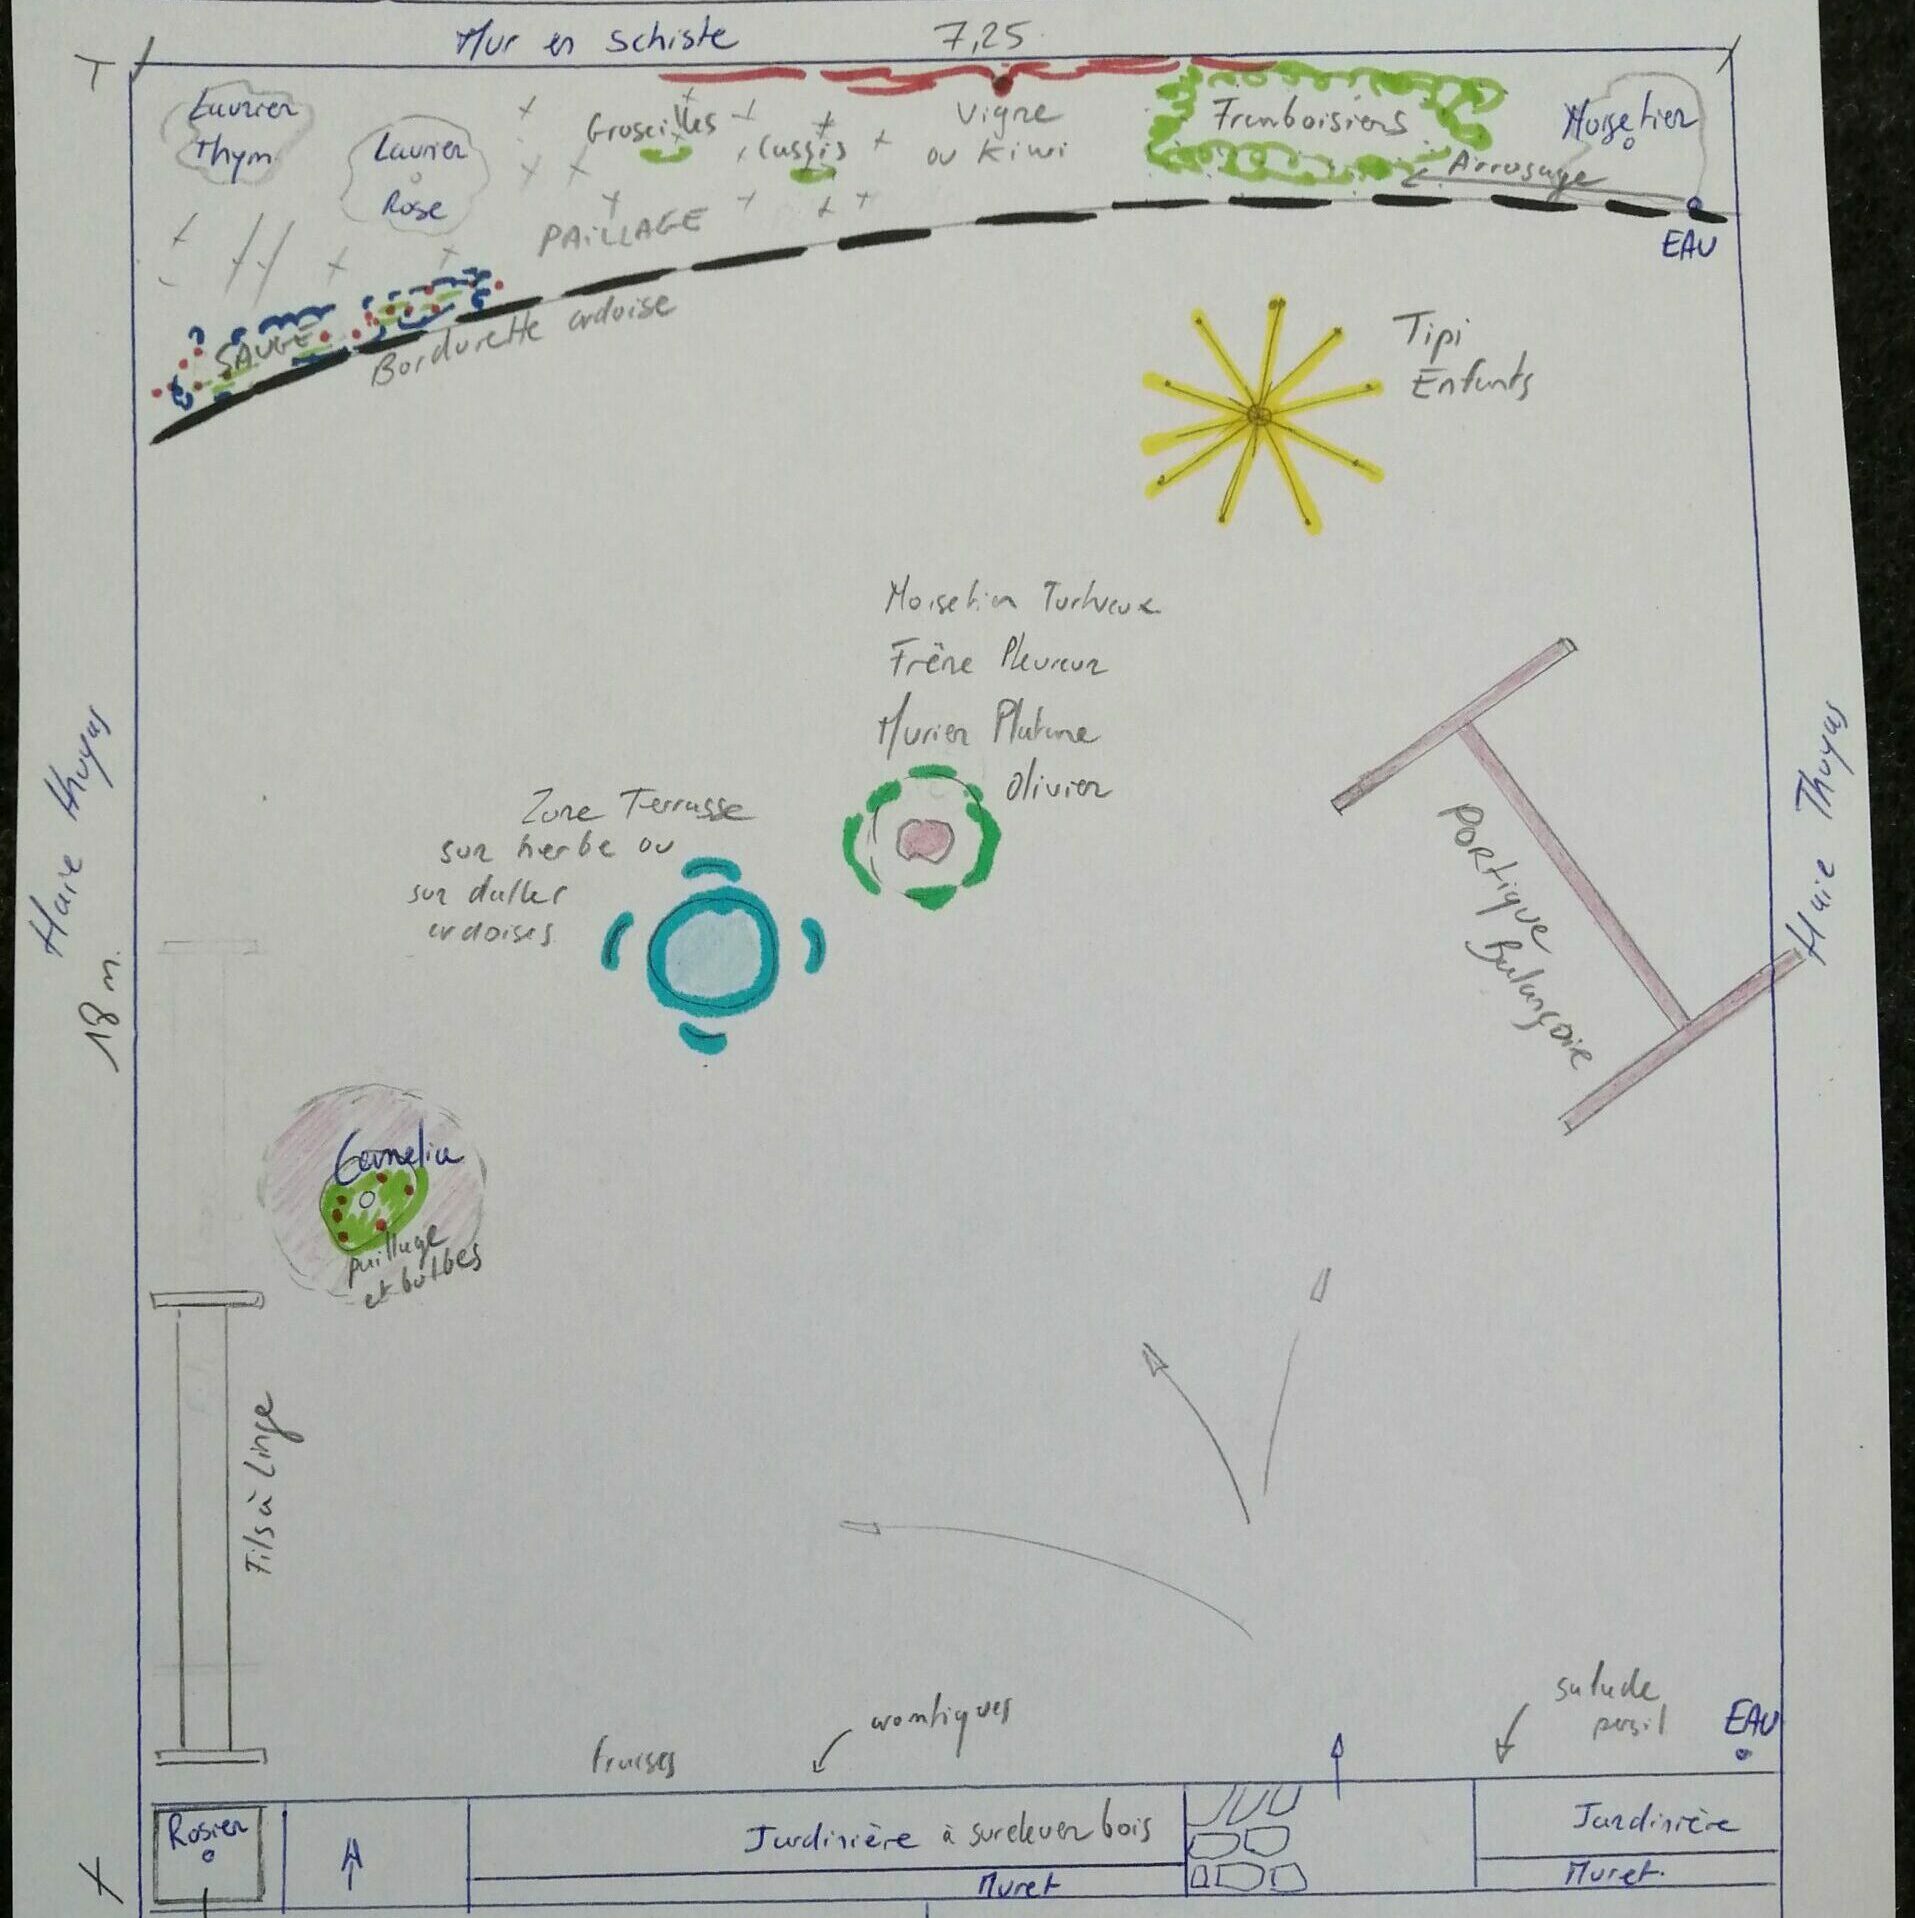 Mur en schiste 7,25
Laurier
Thym
Laurier
Rose
Groseilles
Cassis
Vigne
ou Kiwi
Framboisiers
Noisetier
Arrosage
PAILLAGE
EAU
SAUGE
Bordurette ardoise
Tipi
Enfants
Noisetier Tortueux
Frêne Pleureur
Murier Platane
Olivier
Zone Terrasse
sur herbe ou
sur dalles
ardoises
Portique
Balançoire
Haie thuyas
18 m.
Haie Thuyas
Camelia
paillage
et bulbes
Fils à Linge
aromtiques
fraises
salade
persil
EAU
Rosier
Jardinière à surelever bois
Muret
Jardinière
Muret.